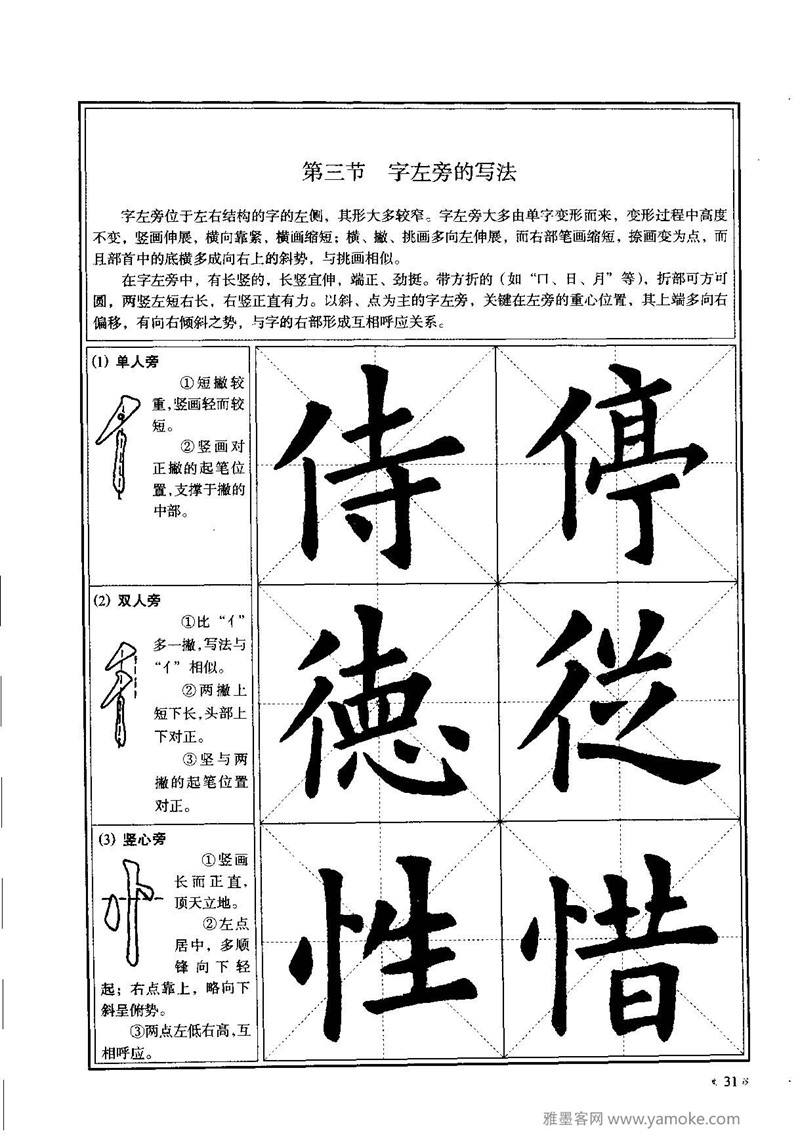 第三节　字左旁的写法
字左旁位于左右结构的字的左侧，其形大多较窄。字左旁大多由单字变形而来，变形过程中高度
不变，竖画伸展，横向靠紧，横画缩短；横、撇、挑画多向左伸展，而右部笔画缩短，捺画变为点，而
且部首中的底横多成向右上的斜势，与挑画相似。
在字左旁中，有长竖的，长竖宜伸，端正、劲挺。带方折的（如“口、日、月”等），折部可方可
圆，两竖左短右长，右竖正直有力。以斜、点为主的字左旁，关键在左旁的重心位置，其上端多向右
偏移，有向右倾斜之势，与字的右部形成互相呼应关系。
(1) 单人旁
①短撇较
重，竖画轻而较
短。
②竖画对
正撇的起笔位
置，支撑于撇的
中部。
侍 停
(2) 双人旁
①比“亻”
多一撇，写法与
“亻”相似。
②两撇上
短下长，头部上
下对正。
③竖与两
撇的起笔位置
对正。
德 従
(3) 竖心旁
①竖画
长而正直，
顶天立地。
②左点
居中，多顺
锋向下轻
起；右点靠上，略向下
斜呈俯势。
③两点左低右高，互
相呼应。
性 惜
31
雅墨客网 www.yamoke.com